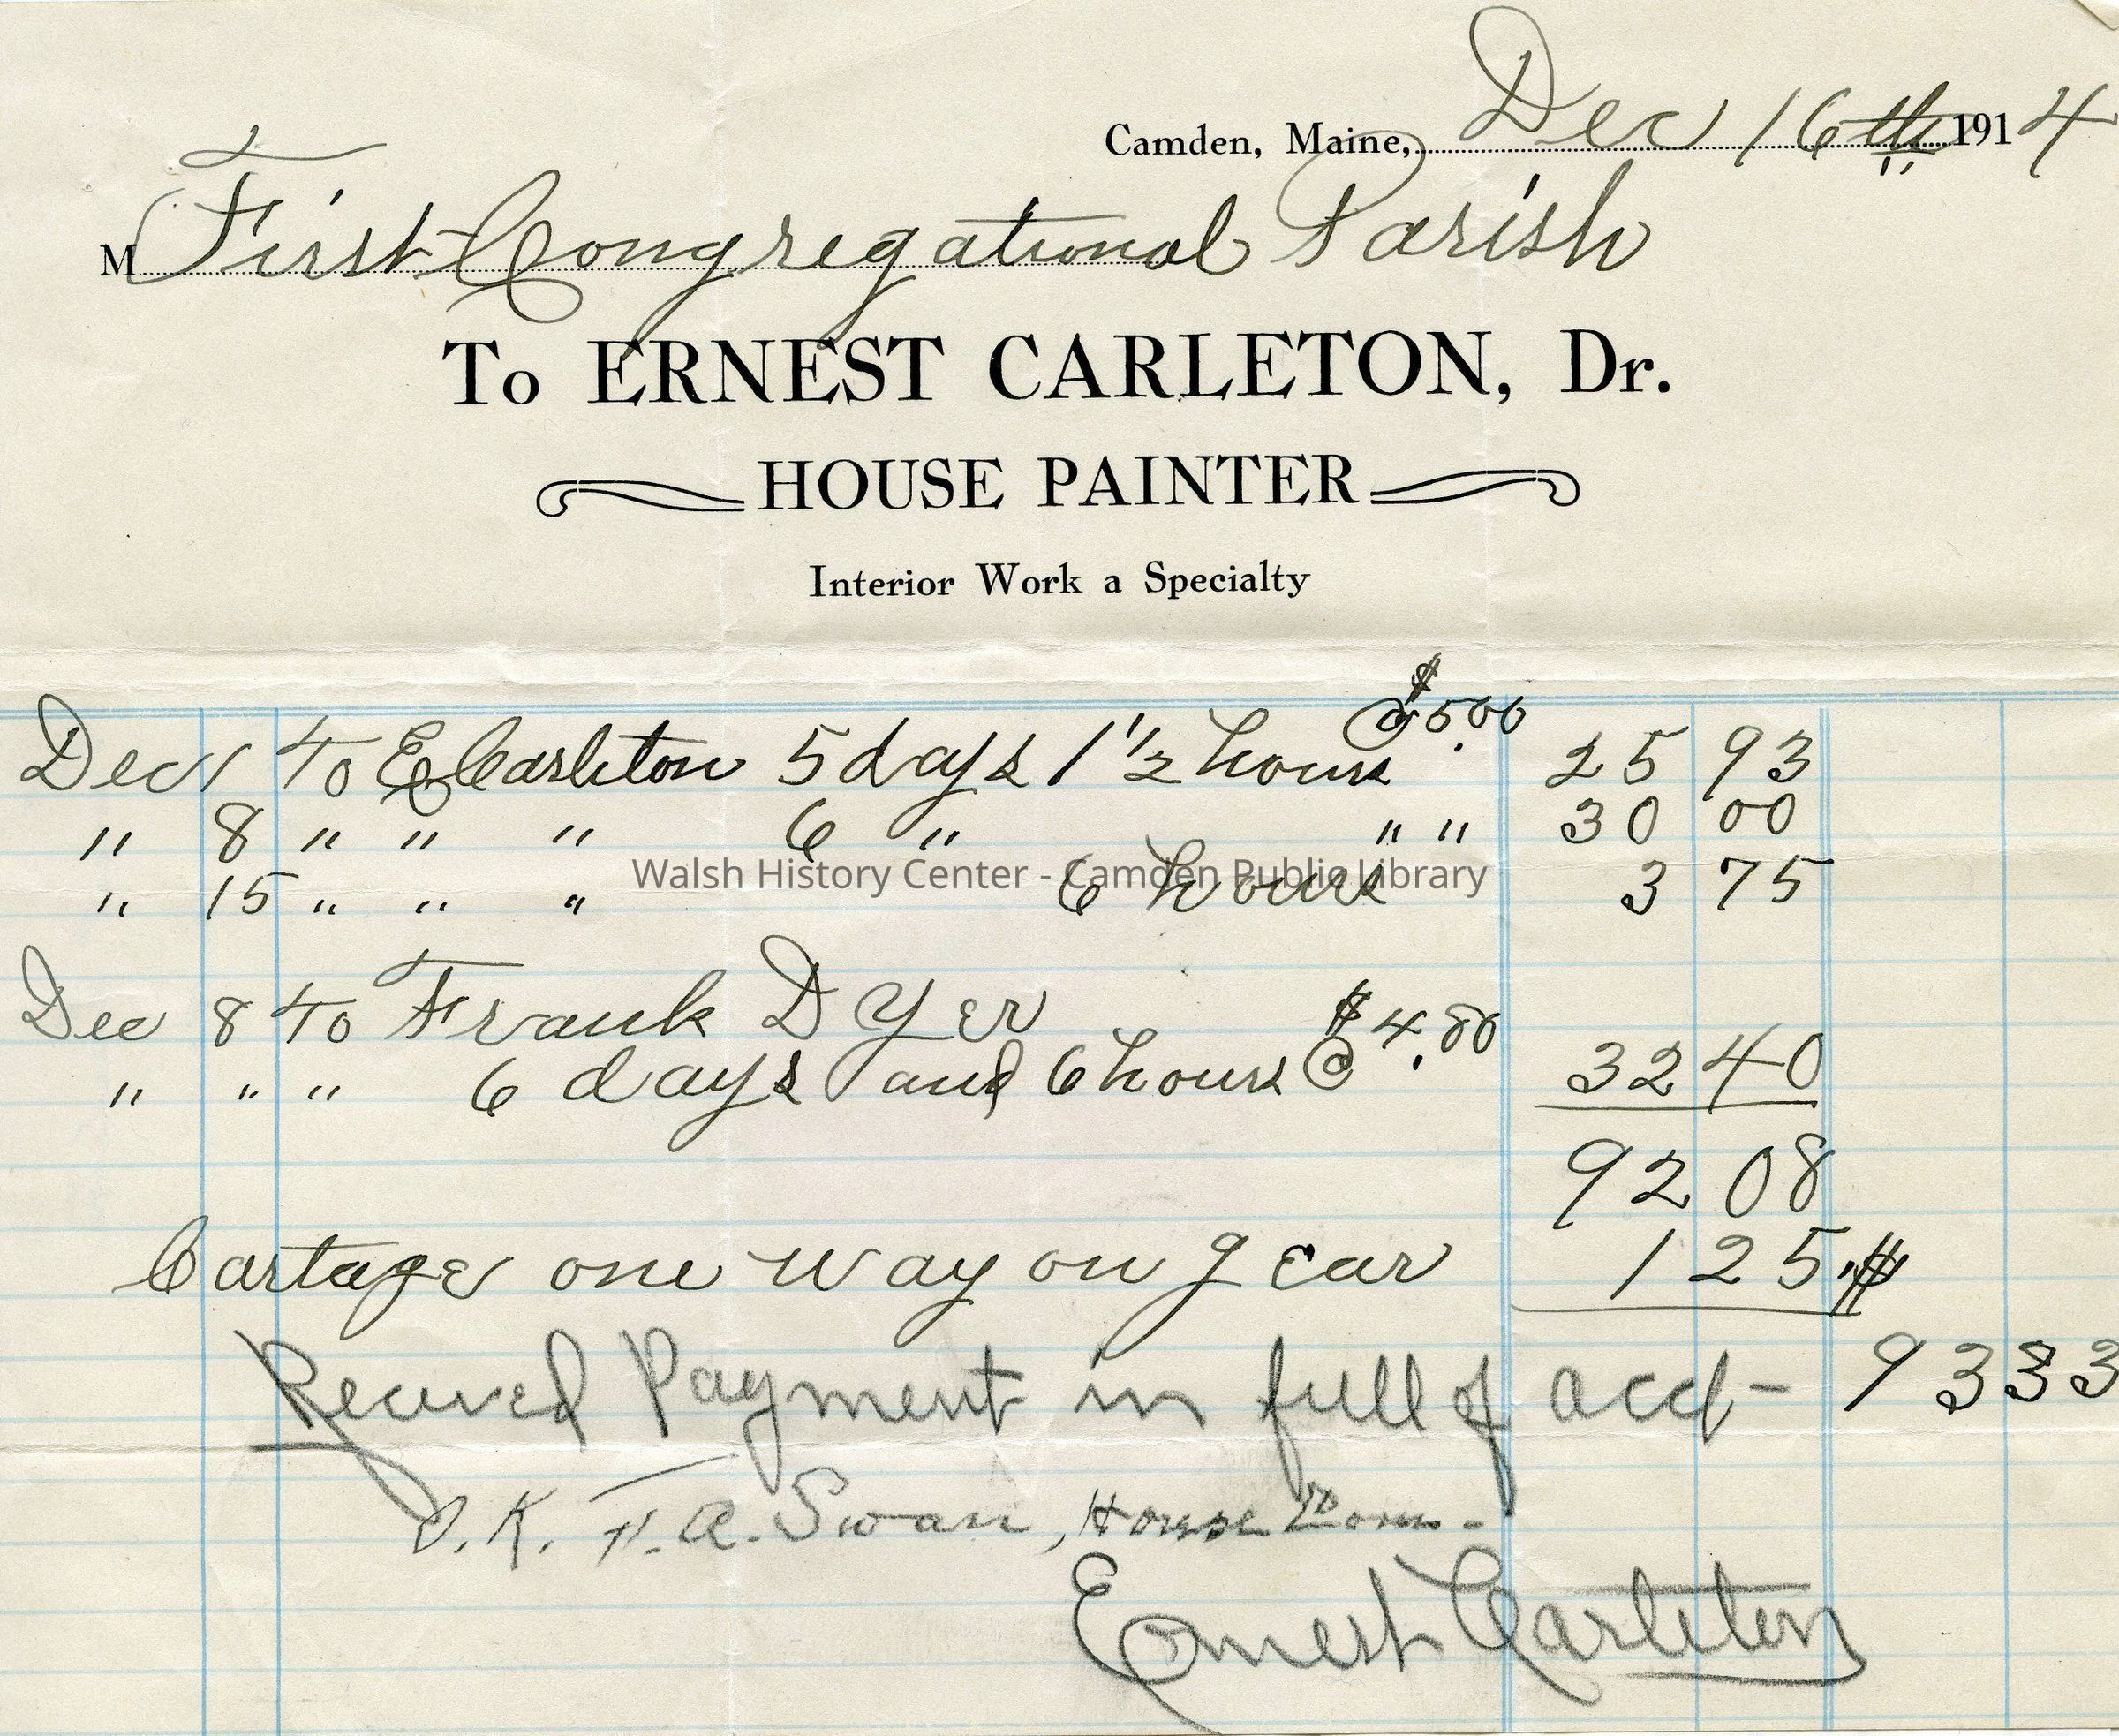 Camden, Maine, Dec 16th 1914
M First Congregational Parish
To ERNEST CARLETON, Dr.
HOUSE PAINTER
Interior Work a Specialty
Dec 1 To E Carleton 5 days 1 1/2 hours @ $5.00 25 93
" 8 " " " 6 " " " 30 00
" 15 " " " 6 hours 3 75
Walsh History Center - Camden Public Library
Dec 8 To Frank Dyer
" " " 6 days and 6 hours @ $4.80 32 40
92 08
Cartage one way on gear 1 25
$ 93 33
Recived Payment in full of acct-
O.K. F. A. Swan, House Com-
Ernest Carleton